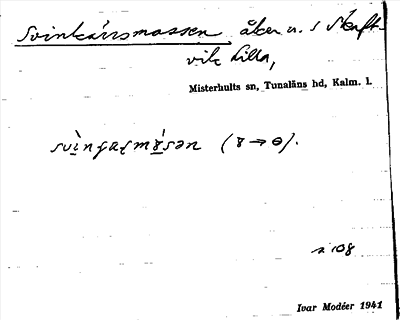 Svinkärrsmossen åker n. s Skaft-
vik Lilla,
Misterhults sn, Tunaläns hd, Kalm. l.
(ɣ → ɵ).
s 108
Ivar Modéer 1941